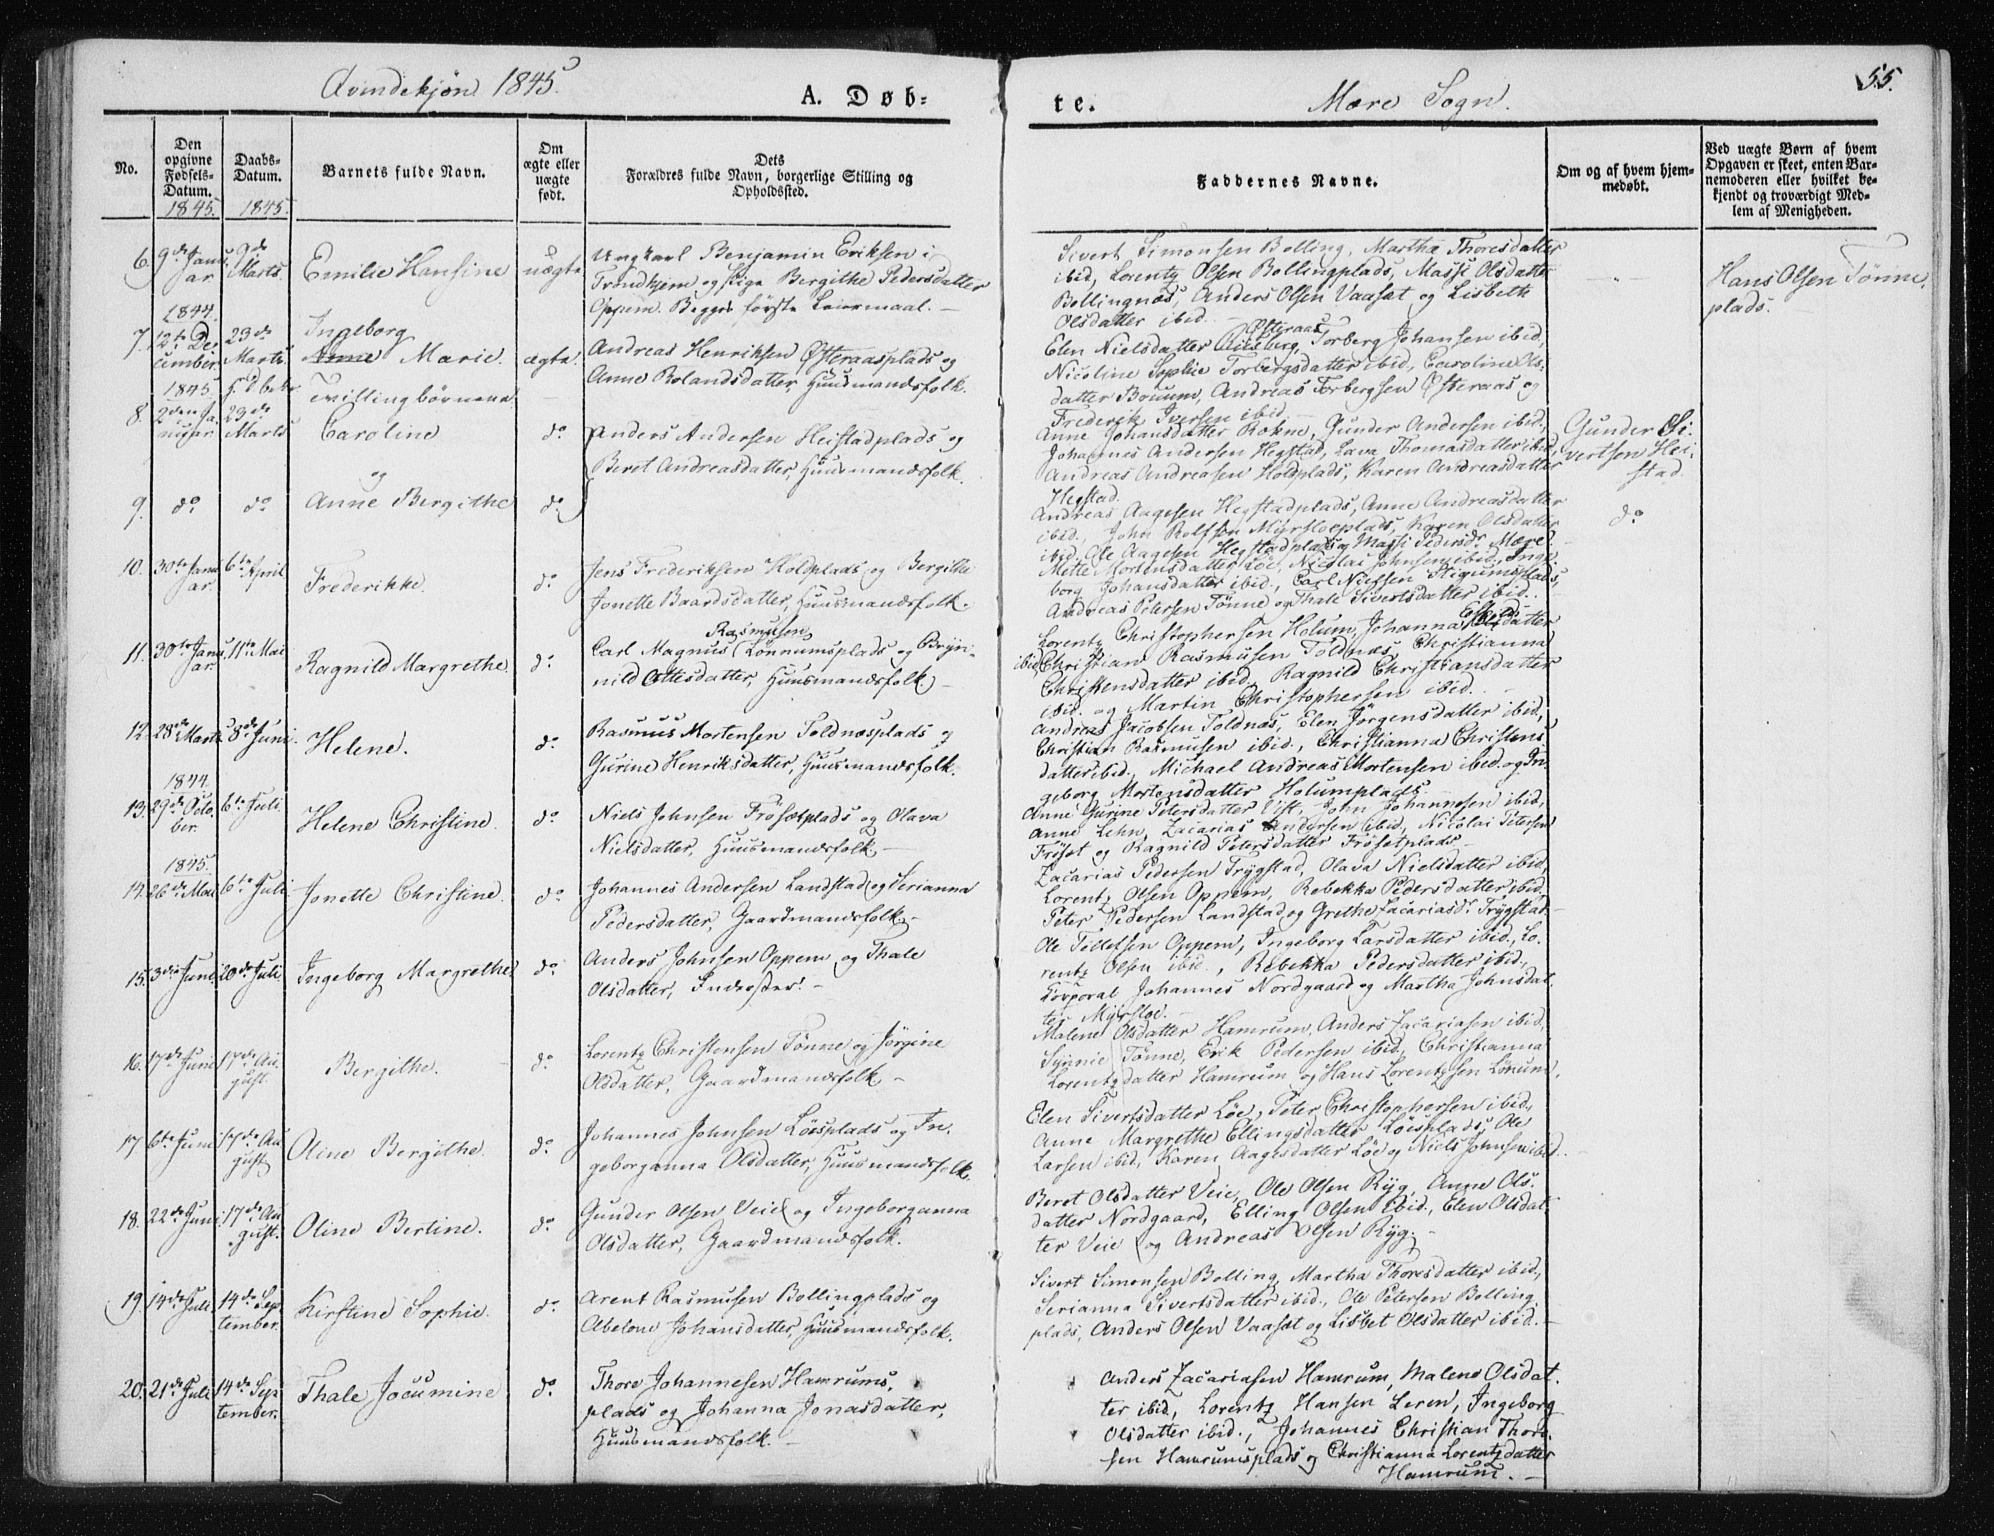 Qvindekjøn 1845.
A. Døb-
te.
Mære Sogn.
55.
No.
Den opgivne Fødsels-Datum.
1845.
Daabs-Datum.
1845.
Barnets fulde Navn.
Om ægte eller uægte født.
Dets
Forældres fulde Navn, borgerlige Stilling og
Opholdssted.
Faddernes Navne.
Om og af hvem hjem-
medøbt.
Ved uægte Børn af hvem
Opgaven er skeet, enten Bar-
nemoderen eller hvilket be-
kjendt og troværdigt Med-
lem af Menigheden.
6. 9de Janu- ar. 9de Marts. Emilie Hansine uægte
Ungkarl Benjamin Eriksen i
Trondhjem og Pige Bergithe Pedersdatter
Oppem. Begges første Leiermaal. —
Sivert Simonsen Bolling, Martha Thoresdatter
ibid, Lorentz Olsen Bollingplads, Massi Olsdatter
Bollingnæs, Anders Olsen Vaasæt og Lisbeth
Olsdatter ibid. —
Hans Olsen Tønne-
plads.
1844.
7. 12te De- cember. 23de Marts. Ingeborg
Anne Marie. ægte.
Andreas Henriksen Østeraasplads og
Anne Rolandsdatter, Huusmandsfolk.
Østeraas,
Elen Nielsdatter Torberg Johansen ibid,
Nicoline Sophie Torbergsdatter ibid, Caroline Ols-
datter Bruum, Andreas Torbergsen Østeraas og
Frederik Iversen ibid. —
1845.
Tvillingbørnene
8. 2den Ja- nuar 23de Marts Caroline do
og
Anders Andersen Heistadplads og
Beret Andreasdatter, Huusmandsfolk.
Anne Johansdatter Rokne, Gunder Andersen ibid.,
Johannes Andersen Hegstad, Lava Thomasdatter ibid,
Andreas Andreasen Holdplads, Karen Andreasdatter
Hegstad.
Gunder Si-
vertsen Hei-
stad
9. do do Anne Bergithe do
Andreas Aagesen Hegstadplads, Anne Andreasdatter
ibid, John Rolfsen Myrsloeplads, Karen Olsdatter
ibid, Ole Aagesen Hegstadplads og Massi Pedersdr Mære.
do
10. 30te Janu- ar. 6te April Frederikke. do
Jens Frederiksen Holdplads og Bergithe
Jonette Baardsdatter, Huusmandsfolk.
Mette Mortensdatter Løe, Nicolai Johnsen ibid, Inge-
borg Johansdatter ibid., Carl Nielsen Stigumsplads,
Andreas Petersen Tønne og Thale Sivertsdatter ibid.
11. 30te Janu- ar. 11te Mai Ragnild Margrethe. do
Rasmusen
Carl Magnus Lønnumsplads og Bryn-
nild Ottesdatter, Huusmandsfolk. —
Lorentz Christophersen Holum, Johanna
ibid, Christian Rasmusen Toldnæs, Christianna
Christensdatter ibid, Ragnild Christiansdatter
ibid. og Martin Christophersen ibid.
12. 28de Marts 8de Juni. Helene. do
Rasmus Mortensen Toldnæsplads og
Gurine Henriksdatter, Huusmandsfolk.
Andreas Jacobsen Toldnæs, Elen Jørgensdatter ibid,
Christian Rasmusen ibid., Christianna Christens-
datter ibid., Michael Andreas Mortensen ibid. og In-
geborg Mortensdatter Holumplads
1844.
13. 29de Octo- ber. 6te Juli. Helene Christine. do
Niels Johnsen Frøsetplads og Olava
Nielsdatter, Huusmandsfolk. —
Anne Gurine Petersdatter Vist, John Johannesen ibid,
Anne Lehn, Zacarias Andersen ibid, Nicolai Petersen
Frøset og Ragnild Petersdatter Frøsetplads —
1845.
14. 26de Mai 6te Juli Jonette Christine. do
Johannes Andersen Landstad og Serianna
Pedersdatter, Gaardmandsfolk. —
Zacarias Pedersen Trygstad, Olava Nielsdatter ibid,
Lorentz Olsen Oppem, Rebekka Pedersdatter ibid,
Peter Pedersen Landstad og Grethe Zacariasdr Trygstad.
15. 3die Juni 20de Juli. Ingeborg Margrethe do
Anders Johnsen Oppem og Thale
Olsdatter, Inderster. —
Ole Tølletsen Oppem, Ingeborg Larsdatter ibid., Lo-
rentz Olsen ibid., Rebekka Pedersdatter ibid.,
Korporal Johannes Nordgaard og Martha Johnsdat-
ter Myrsloe. —
16. 17de Juni 17de Au- gust. Bergithe. do
Lorentz Christensen Tønne og Jørgine
Olsdatter, Gaardmandsfolk. —
Malene Olsdatter Hamrum, Anders Zacariasen ibid,
Synnie Tønne, Erik Pedersen ibid, Christianna
Lorentzdatter Hamrum og Hans Lorentzsen Lønum.
17 6te Juni 17de Au- gust Oline Bergithe. do
Johannes Johnsen Løesplads og In-
geborganna Olsdatter, Huusmandsfolk.
Elen Sivertsdatter Løe, Peter Christophersen ibid.,
Anne Margrethe Ellingsdatter Løesplads, Ole
Larsen ibid, Karen Aagesdatter Løe og Niels Johnsen ibid.
18. 22de Juni 17de Au- gust. Oline Bertine. do
Gunder Olsen Veie og Ingeborganna
Olsdatter, Gaardmandsfolk.
Beret Olsdatter Veie, Ole Olsen Ryg, Anne Ols-
datter Nordgaard, Elling Olsen ibid., Elen Olsdat-
ter Veie og Andreas Olsen Ryg. —
19. 14de Juli 14de Sep- tember. Kirstine Sophie. do
Arent Rasmusen Bollingplads og
Abelone Johansdatter, Huusmandsfolk.
Sivert Simonsen Bolling, Martha Thoresdatter ibid.,
Serianna Sivertsdatter ibid., Ole Petersen Bolling
plads, Anders Olsen Vaasæt og Lisbet Olsdatter ibid. —
20. 21de Juli 14de Sep- tember. Thale Jocumine do
Thore Johannesen Hamrums-
plads og Johanna Jonasdatter,
Huusmandsfolk. —
Anders Zacariasen Hamrum, Malene Olsdat-
ter ibid, Lorentz Hansen Leren, Ingeborg
Olsdatter ibid., Johannes Christian Thore-
sen Hamrumsplads og Christianna Lorentzdatter
Hamrum. —